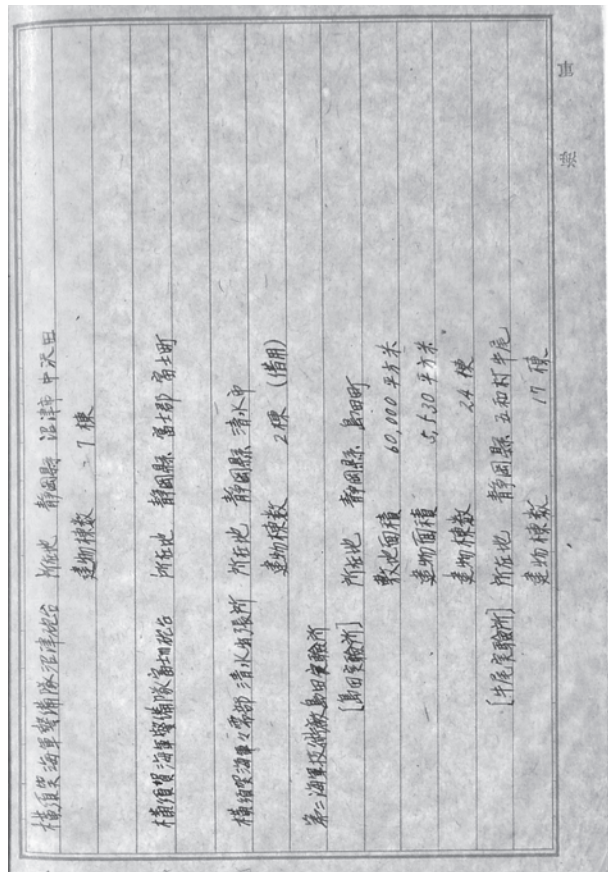 横須賀海軍警備隊沼津砲台 所在地 静岡縣 沼津市 中沢田
建物棟数 7棟
横須賀海軍警備隊富士砲台 所在地 静岡縣 富士郡 富士町
横須賀海軍々需部清水出張所 所在地 静岡縣 清水市
建物棟数 2棟 (借用)
第二海軍技術廠島田実験所
[島田実験所] 所在地 静岡縣 島田町
敷地面積 60,000平方米
建物面積 5,530平方米
建物棟数 24棟
[牛尾実験所] 所在地 静岡縣 五和村牛尾
建物棟数 17棟